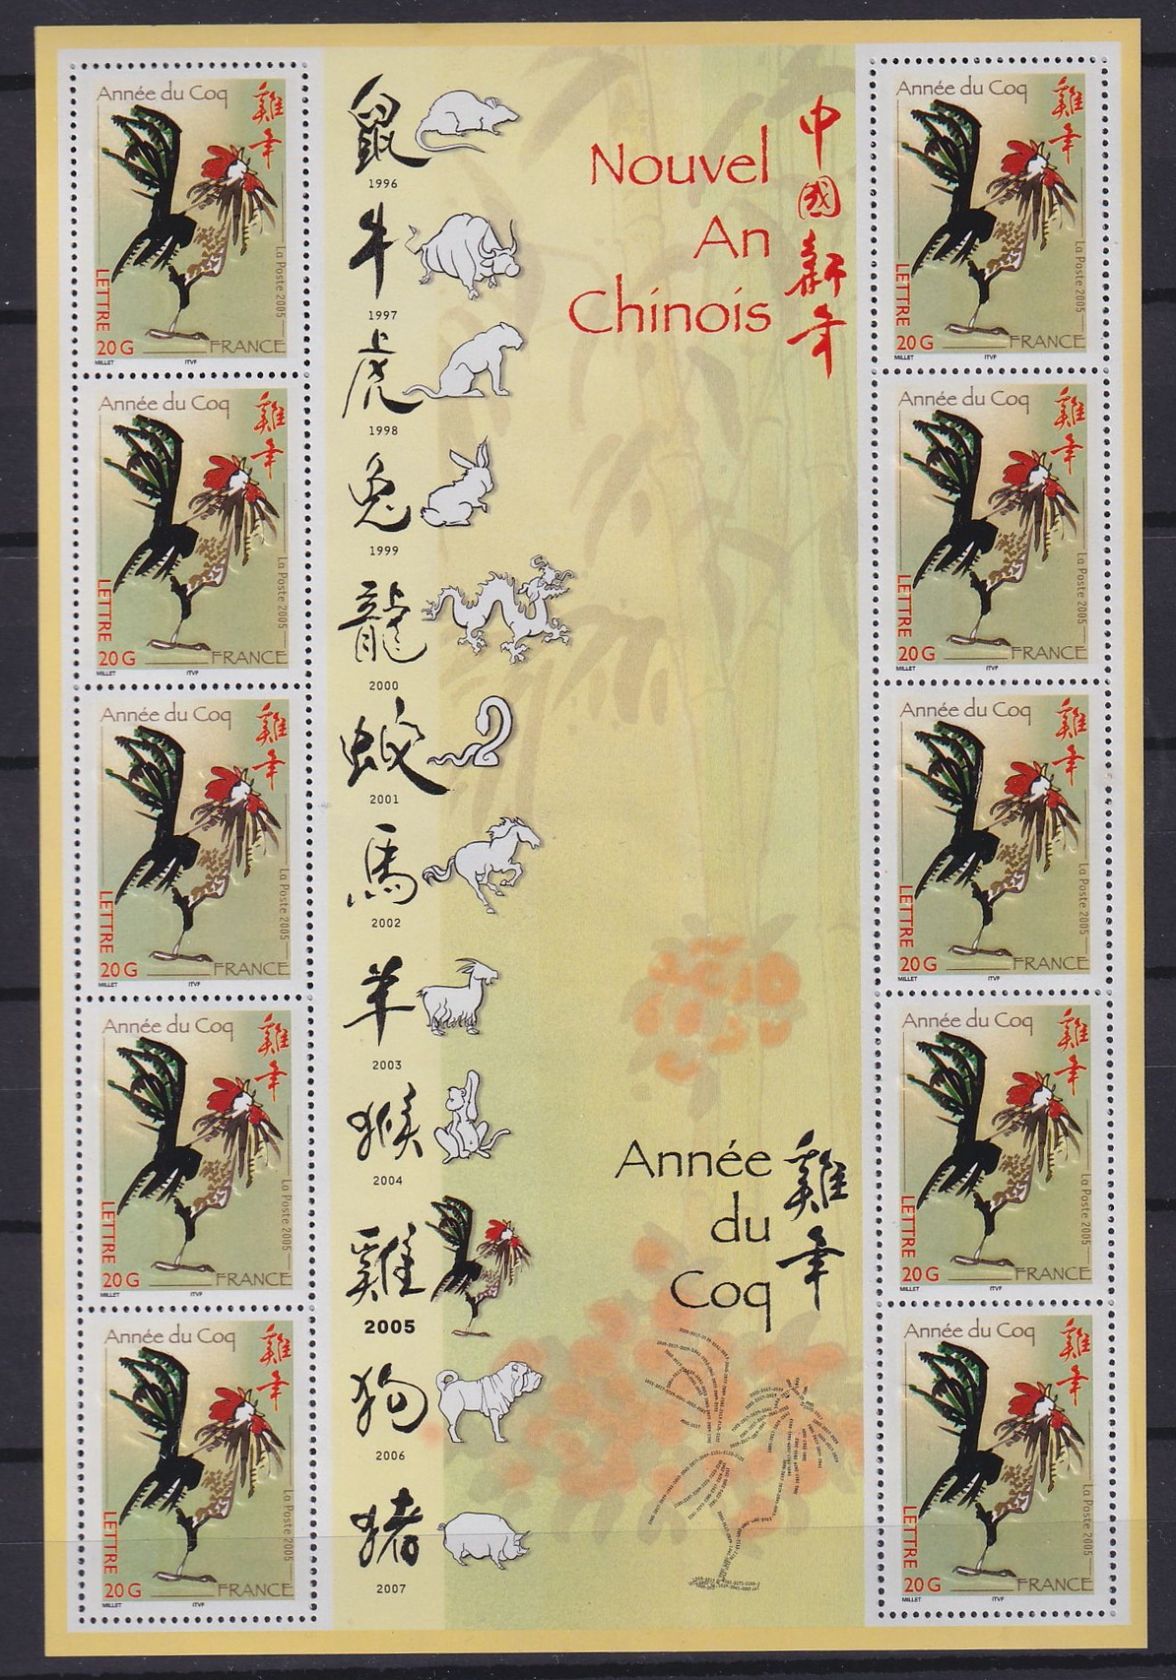 Année du Coq
雞年
La Poste 2005
LETTRE
20 G
FRANCE
MILLET
ITVF
Année du Coq
雞年
La Poste 2005
LETTRE
20 G
FRANCE
MILLET
ITVF
Année du Coq
雞年
La Poste 2005
LETTRE
20 G
FRANCE
MILLET
ITVF
Année du Coq
雞年
La Poste 2005
LETTRE
20 G
FRANCE
MILLET
ITVF
Année du Coq
雞年
La Poste 2005
LETTRE
20 G
FRANCE
MILLET
ITVF
鼠
1996
牛
1997
虎
1998
兔
1999
龍
2000
蛟
2001
馬
2002
羊
2003
猴
2004
雞
2005
狗
2006
猪
2007
Nouvel
An
Chinois
中國新年
Année
du
Coq
雞年
Année du Coq
雞年
La Poste 2005
LETTRE
20 G
FRANCE
MILLET
ITVF
Année du Coq
雞年
La Poste 2005
LETTRE
20 G
FRANCE
MILLET
ITVF
Année du Coq
雞年
La Poste 2005
LETTRE
20 G
FRANCE
MILLET
ITVF
Année du Coq
雞年
La Poste 2005
LETTRE
20 G
FRANCE
MILLET
ITVF
Année du Coq
雞年
La Poste 2005
LETTRE
20 G
FRANCE
MILLET
ITVF